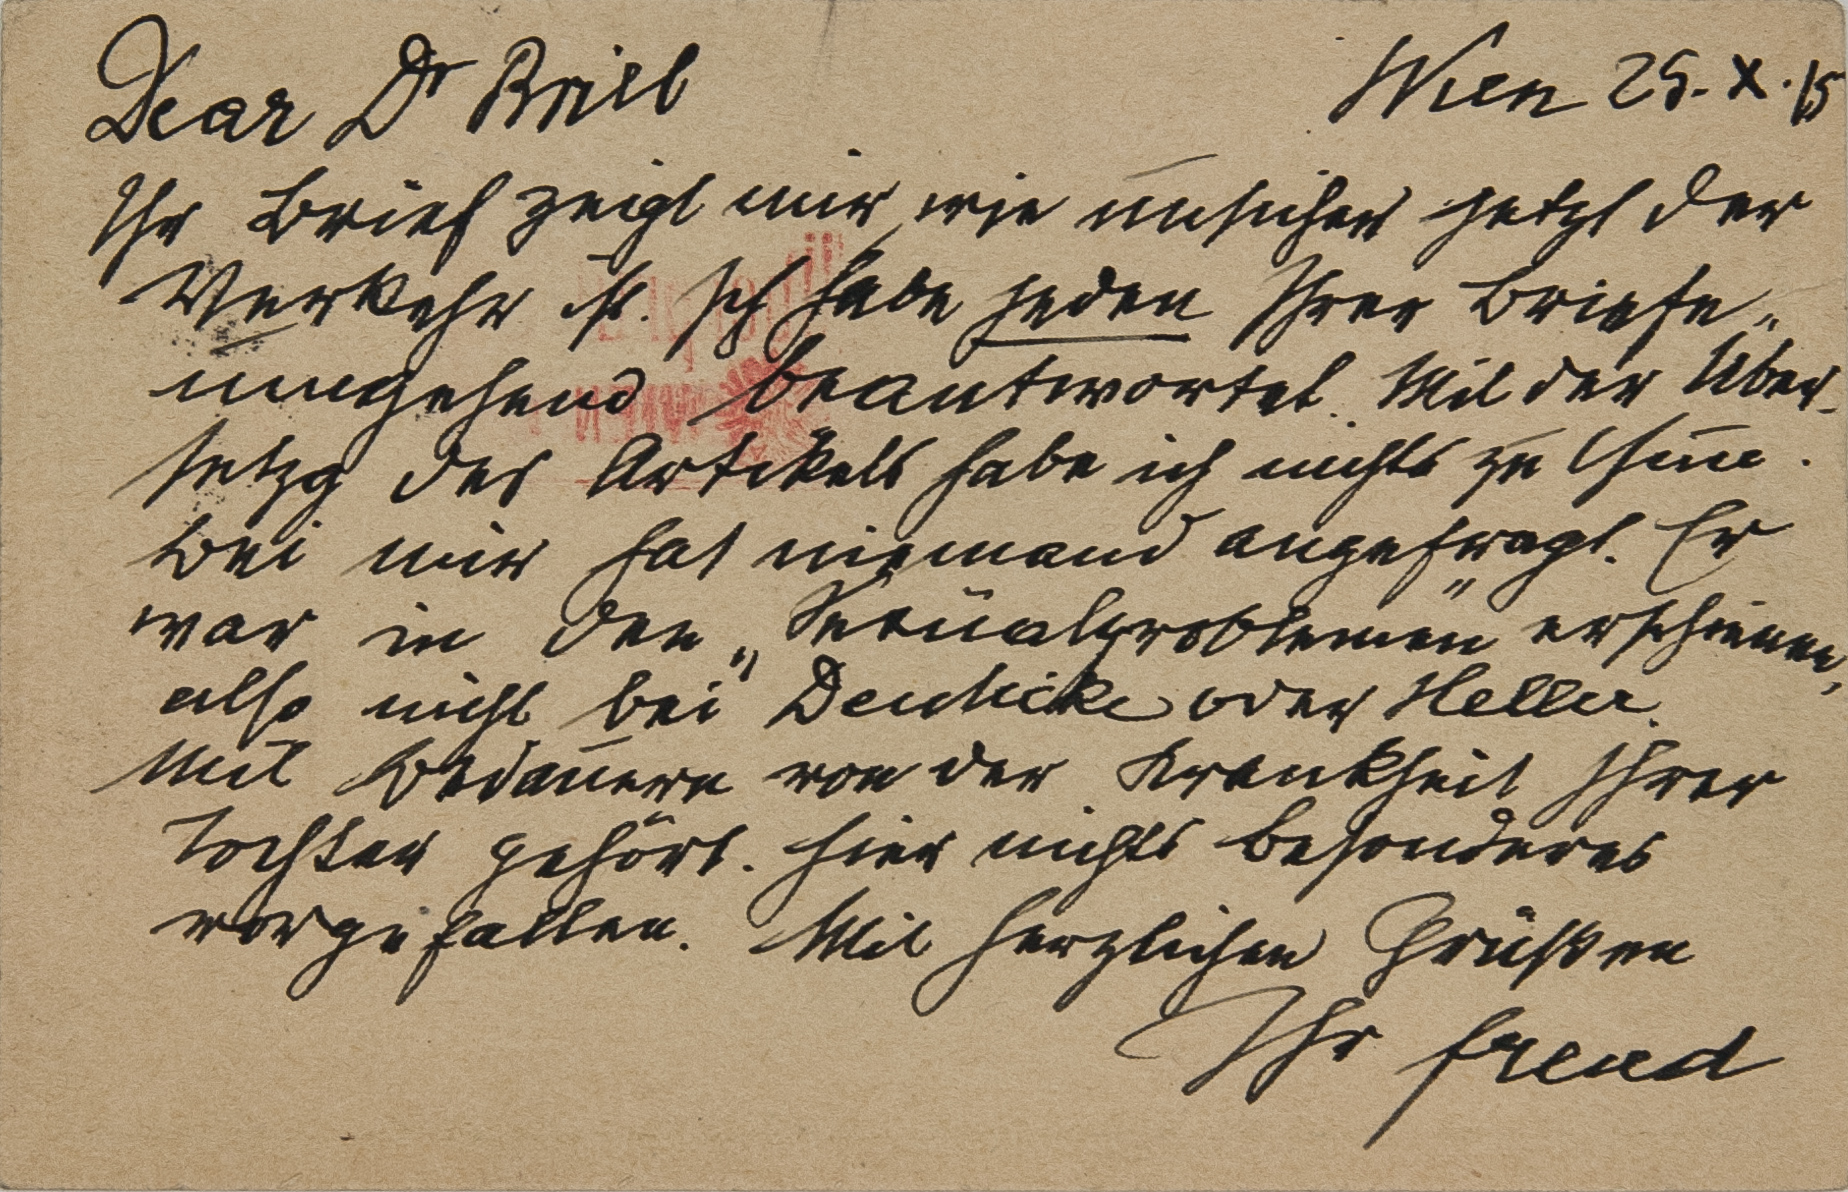 Dear Dr Brill
Wien 25. X. 15
Ihr Brief zeigt mir, wie unsicher jetzt der
Verkehr ist. Ich habe jeden Ihrer Briefe
umgehend beantwortet. Mit der Über-
setzg des Artikels habe ich nichts zu thun.
Bei mir hat niemand angefragt. Er
war in den „Sexualproblemen" erschienen,
also nicht bei Deuticke oder Heller.
Mit Bedauern von der Krankheit Ihrer
Tochter gehört. Hier nichts besonderes
vorgefallen. Mit herzlichen Grüßen
Ihr Freud